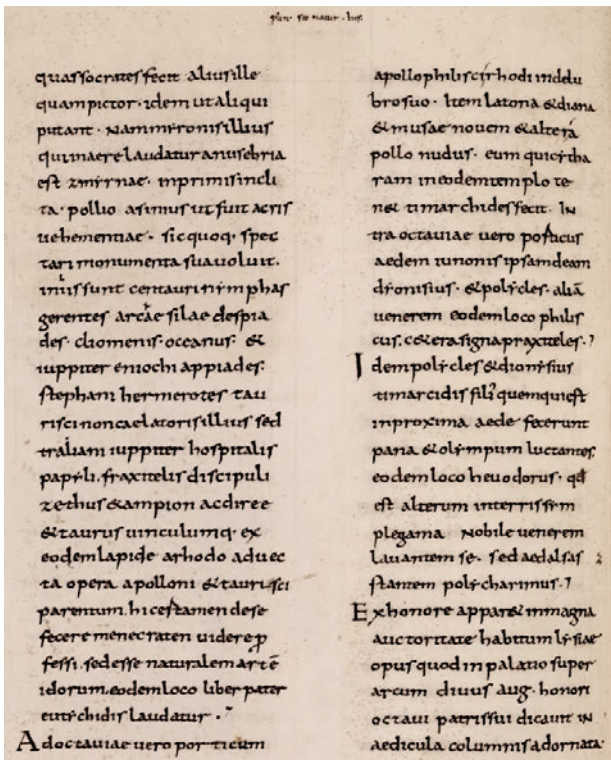 quas socrates fecit alius ille
quam pictor · idem ut aliqui
putant · Nam myronis illius
qui in aere laudatur anus ebria
est zmyrnae · in primis incli
ta · pollio asinius ut fuit acris
uehementiae · sic quoq· spec
tari monumenta sua uoluit ·
in iis sunt centauri nymphas
gerentes arcae silae despia
des · cliomenis · oceanus · &
iuppiter eniochi appiades ·
stephani hermerotes tau
risci non caelatoris illius sed
traliani iuppiter hospitalis
papyli · fraxitelis discipuli
zethus & ampion ac diree
& taurus uinculumq· ex
eodem lapide arhodo aduec
ta opera apolloni & taurisci
parentum · hi certamen de se
fecere menecraten uideri ꝓ
fessi · sed esse naturalem artē
idorum · eodem loco liber pater
eutychidis laudatur ·
Ad octauiae uero porticum
apollo philisci rhodi in delu
bro suo · Item latona & diana
& musae nouem & alter a
pollo nudus · eum qui cytha
ram in eodem templo te
n& timarchides fecit · In
tra octauiae uero posticus
aedem iunonis ipsam deam
dionisius · & polycles · aliā
uenerem eodem loco philis
cus · c&era signa praxiteles ·
Idem polycles & dionysius
timarcidis fili quem qui est
in proxima aede fecerunt
pana & olympum luctantes
eodem loco heuodorus · qd
est alterum in terris sym
plegama Nobile uenerem
lauantem se · sed aedalsas
stantem polycharimus ·
Ex honore appar& in magna
auctoritate habitum lysiae
opus quod in palatio super
arcum diuus aug · honori
octaui patris sui dicauit in
aedicula columnis adornata ·